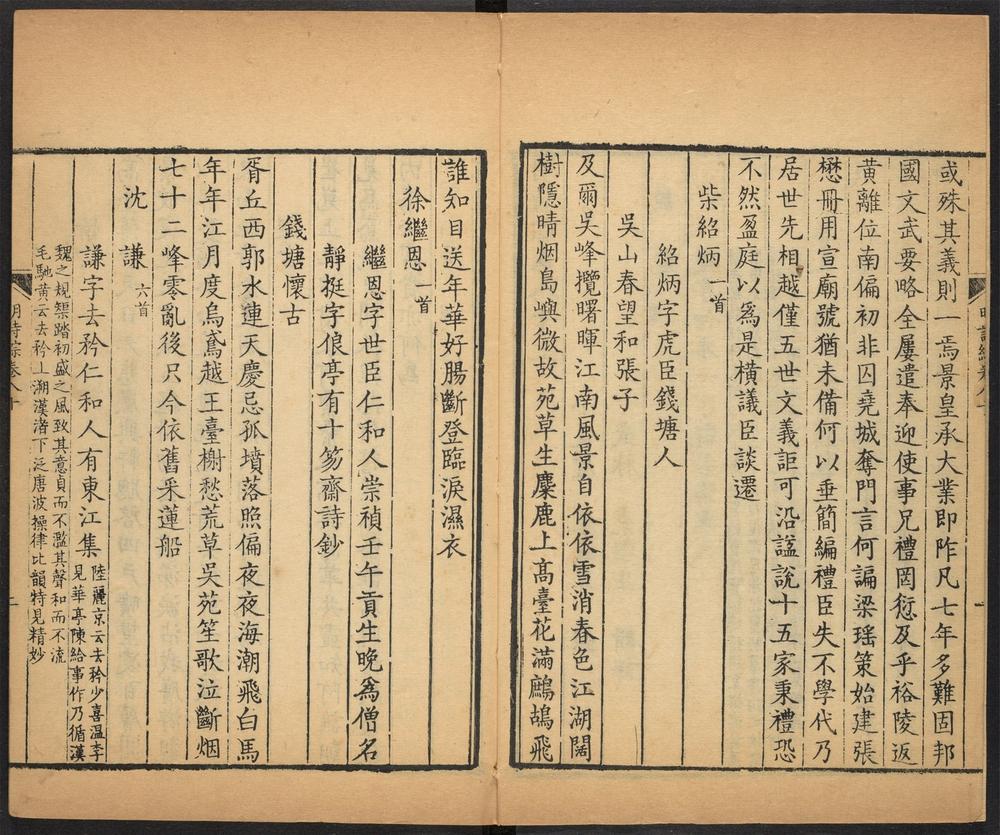 或殊其義則一焉景皇承大業即阼凡七年多難固邦
國文武要略全屢遣奉迎使事兄禮罔愆及乎裕陵返
黃離位南偏初非囚堯城奪門言何諞梁瑤策始建張
懋冊用宣廟號猶未備何以垂簡編禮臣失不學代乃
居世先相越僅五世文義詎可沿諡說十五家秉禮恐
不然盈庭以爲是橫議臣談遷
柴紹炳一首
紹炳字虎臣錢塘人
吳山春望和張子
及爾吳峰攬曙暉江南風景自依依雪消春色江湖闊
樹隱晴烟島嶼微故苑草生麋鹿上高臺花滿鷓鴣飛
誰知目送年華好腸斷登臨淚濕衣
徐繼恩一首
繼恩字世臣仁和人崇禎壬午貢生晚爲僧名
靜挺字俍亭有十笏齋詩鈔
錢塘懷古
胥丘西郭水連天慶忌孤墳落照偏夜夜海潮飛白馬
年年江月度烏鳶越王臺榭愁荒草吳苑笙歌泣斷烟
七十二峰零亂後只今依舊采蓮船
沈謙六首
謙字去矜仁和人有東江集陸麗京云去矜少喜溫李
見華亭陳給事作乃循漢
魏之規榘踏初盛之風致其意貞而不濫其聲和而不流
毛馳黃云去矜上溯漢渚下泛唐波操律比韻特見精妙
明詩綜卷八十
二